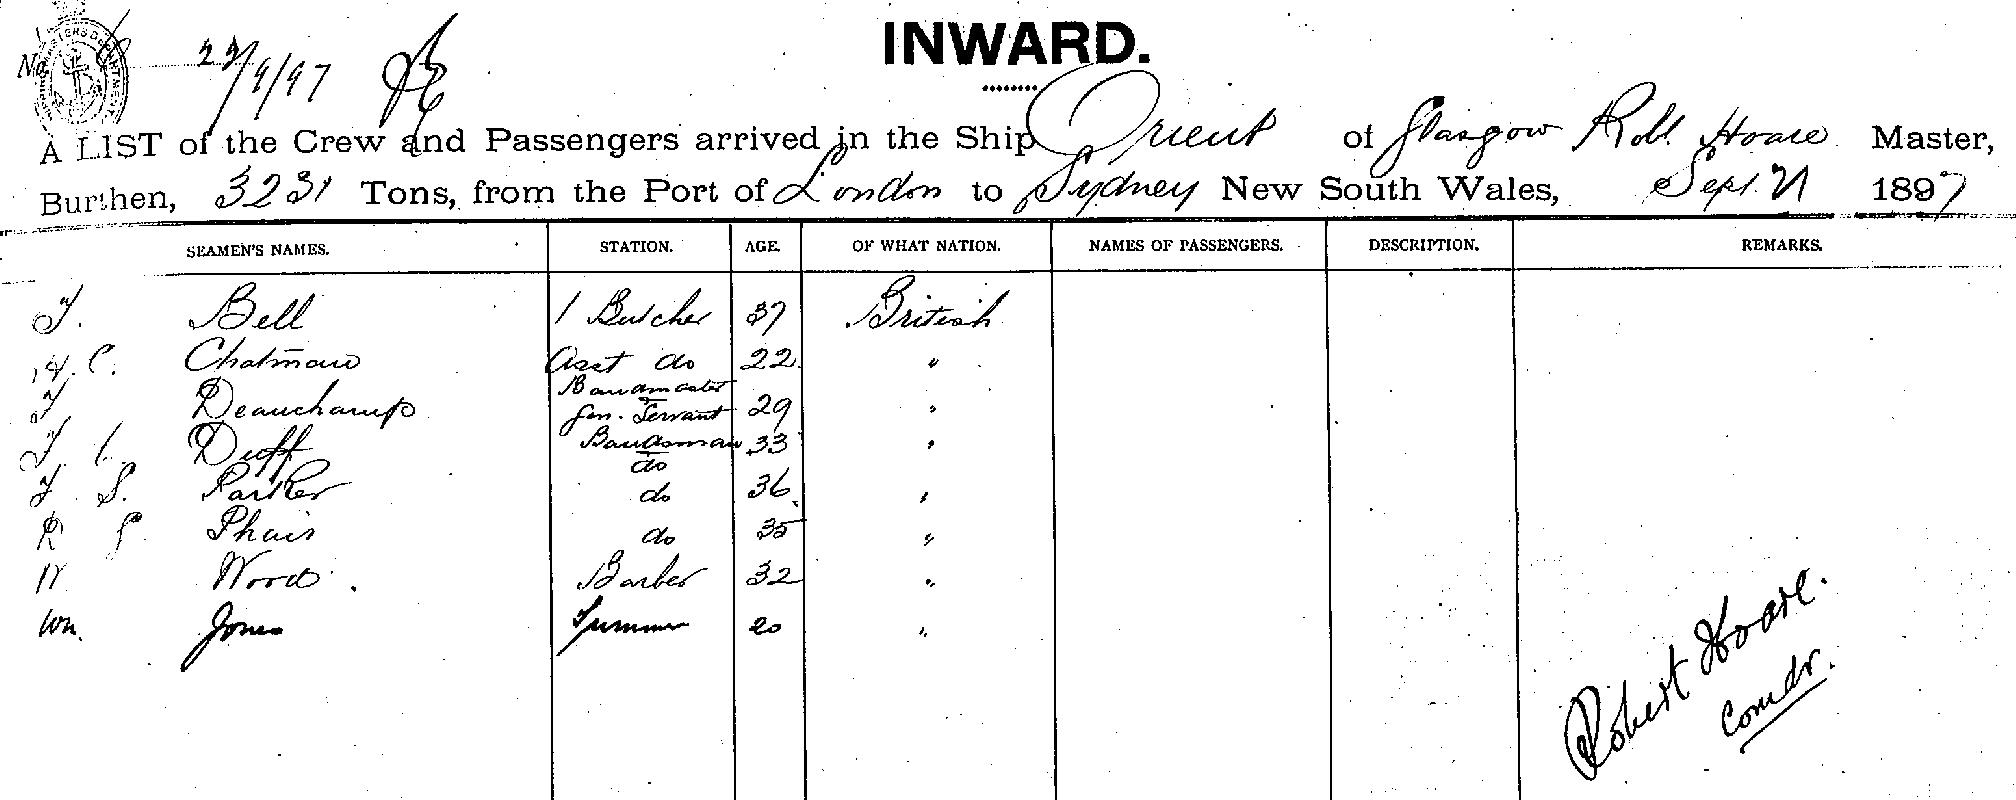 No.
INWARD.
22/9/97
A LIST of the Crew and Passengers arrived in the Ship Orient of Glasgow Robt. Hoare Master,
Burthen, 3231 Tons, from the Port of London to Sydney New South Wales, Sept. 21 1897
SEAMEN'S NAMES. STATION. AGE. OF WHAT NATION. NAMES OF PASSENGERS. DESCRIPTION. REMARKS.
T. Bell 1 Butcher 37 British
H. C. Chatman Asst do 22 "
Bandmaster
T Deauchamp Gen. Servant 29 "
T. C. Duff Bandsman 33 "
do
T. S. Parker do 36 "
R G. Phair do 35 "
W Wood. Barber 32 "
Wm. Jones 20 "
Robert Hoare.
Comdr.